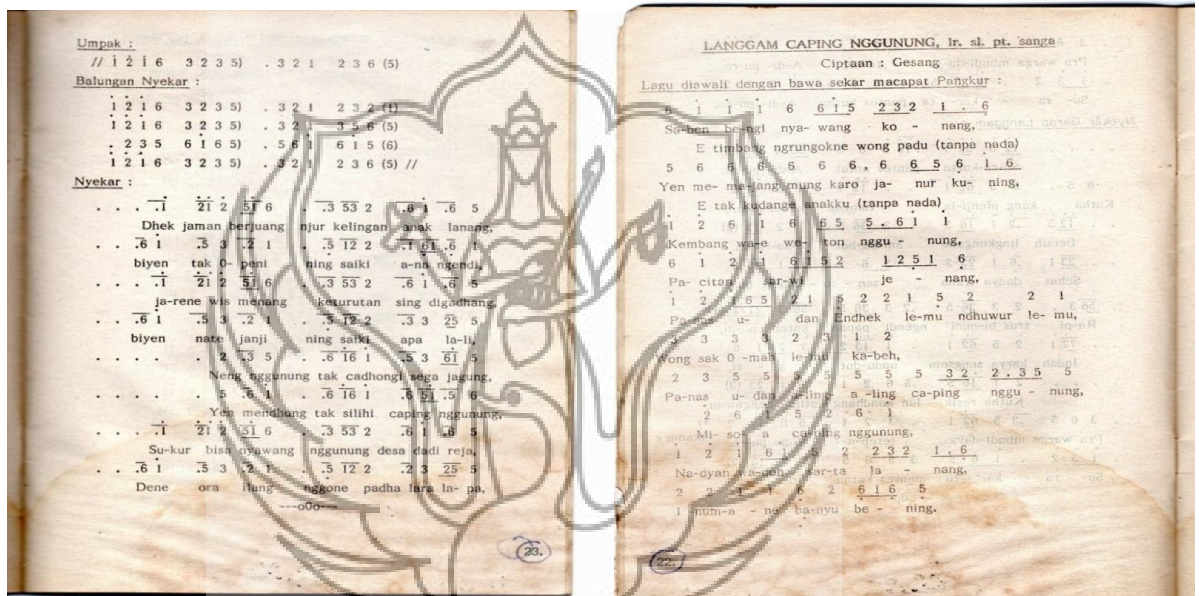 Umpak :
// 1̇ 2̇ 1̇ 6 3 2 3 5) . 3 2 1 2 3 6 (5)
Balungan Nyekar :
1̇ 2̇ 1̇ 6 3 2 3 5) . 3 2 1 2 3 2 (1)
1̇ 2̇ 1̇ 6 3 2 3 5) . 3 2 1 3 5 6 (5)
. 2 3 5 6 1̇ 6 5) . 5 6 1̇ 6 1 5 (6)
1̇ 2̇ 1̇ 6 3 2 3 5) . 3 2 1 2 3 6 (5) //
Nyekar :
. . . .1̇ 2̇1̇ 2̇ 51̇ 6 . .3 53 2 .6 1 .6 5
Dhek jaman berjuang njur kelingan anak lanang,
. . .6 1 .5 3 .2 1 . .5 12 2 .1 61 .6 1
biyen tak O- peni ning saiki a-na ngendi,
. . . .1̇ 2̇1̇ 2̇ 51̇ 6 . .3 53 2 .6 1 .6 5
ja-rene wis menang keturutan sing digadhang,
. . .6 1 .5 3 .2 1 . .5 12 2 .3 3 25 5
biyen nate janji ning saiki apa la-li,
. . . . . 2 .3 5 . .6 1̇6 1̇ .5 3 61 5
Neng nggunung tak cadhongi sega jagung,
. . . . . 5 .6 1̇ . .6 1̇6 1̇ .6 51 .5 6
Yen mendhung tak silihi caping nggunung,
. . . .1̇ 2̇1̇ 2̇ 51̇ 6 . .3 53 2 .6 1 .6 5
Su-kur bisa nyawang nggunung desa dadi reja,
. . .6 1 .5 3 .2 1 . .5 12 2 .2 3 25 5
Dene ora ilang nggone padha lara la- pa,
---o0o---
23.
LANGGAM CAPING NGGUNUNG, lr. sl. pt. sanga
Ciptaan : Gesang
Lagu diawali dengan bawa sekar macapat Pangkur :
6 1̇ 1̇ 1̇ 6 6 1̇ 5 2 3 2 1 . 6
Sa-ben be-ngi nya- wang ko - nang,
E timbang ngrungokne wong padu (tanpa nada)
5 6 6 6 6 6 6 . 6 6 5 6 1 6
Yen me- ma-jang mung karo ja- nur ku- ning,
E tak kudange anakku (tanpa nada)
1 2 6 1̇ 6 6 5 5 . 6 1 1
Kembang wa-e we- ton nggu - nung,
6 1 2 1 6 1 5 2 1 2 5 1 6
Pa- citan sar-wi je - nang,
1 2 1 6 5 2 1 5 2 2 1 5 2 2 1
Pa-nas u- dan Endhek le-mu ndhuwur le- mu,
3 3 3 3 2 3 1 2
Wong sak O -mah le-mu kabeh,
2 3 5 5 5 5 5 5 5 3 2 2 . 3 5 5
Pa-nas u-dan a -ling ca-ping nggu - nung,
2 6 1 5 2 6 1
Mi- so- a caping nggunung,
1 2 1 6 1 5 2 2 3 2 1 . 6
Na-dyan wa-don sar-ta la - nang,
2 2 1 1 6 2 6 1 6 5
I -num-a - ne ba-nyu be - ning.
22.